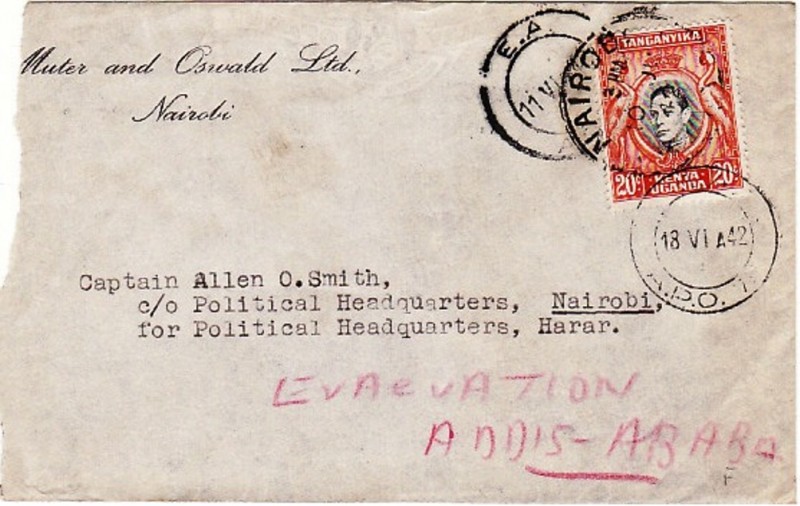 Muter and Oswald Ltd.,
Nairobi
E.A.
11 VI
NAIROBI
TANGANYIKA
20c KENYA 20c
UGANDA
18 VI A42
A.P.O.
Captain Allen O.Smith,
c/o Political Headquarters, Nairobi,
for Political Headquarters, Harar.
EVACUATION
ADDIS-ABABA
F